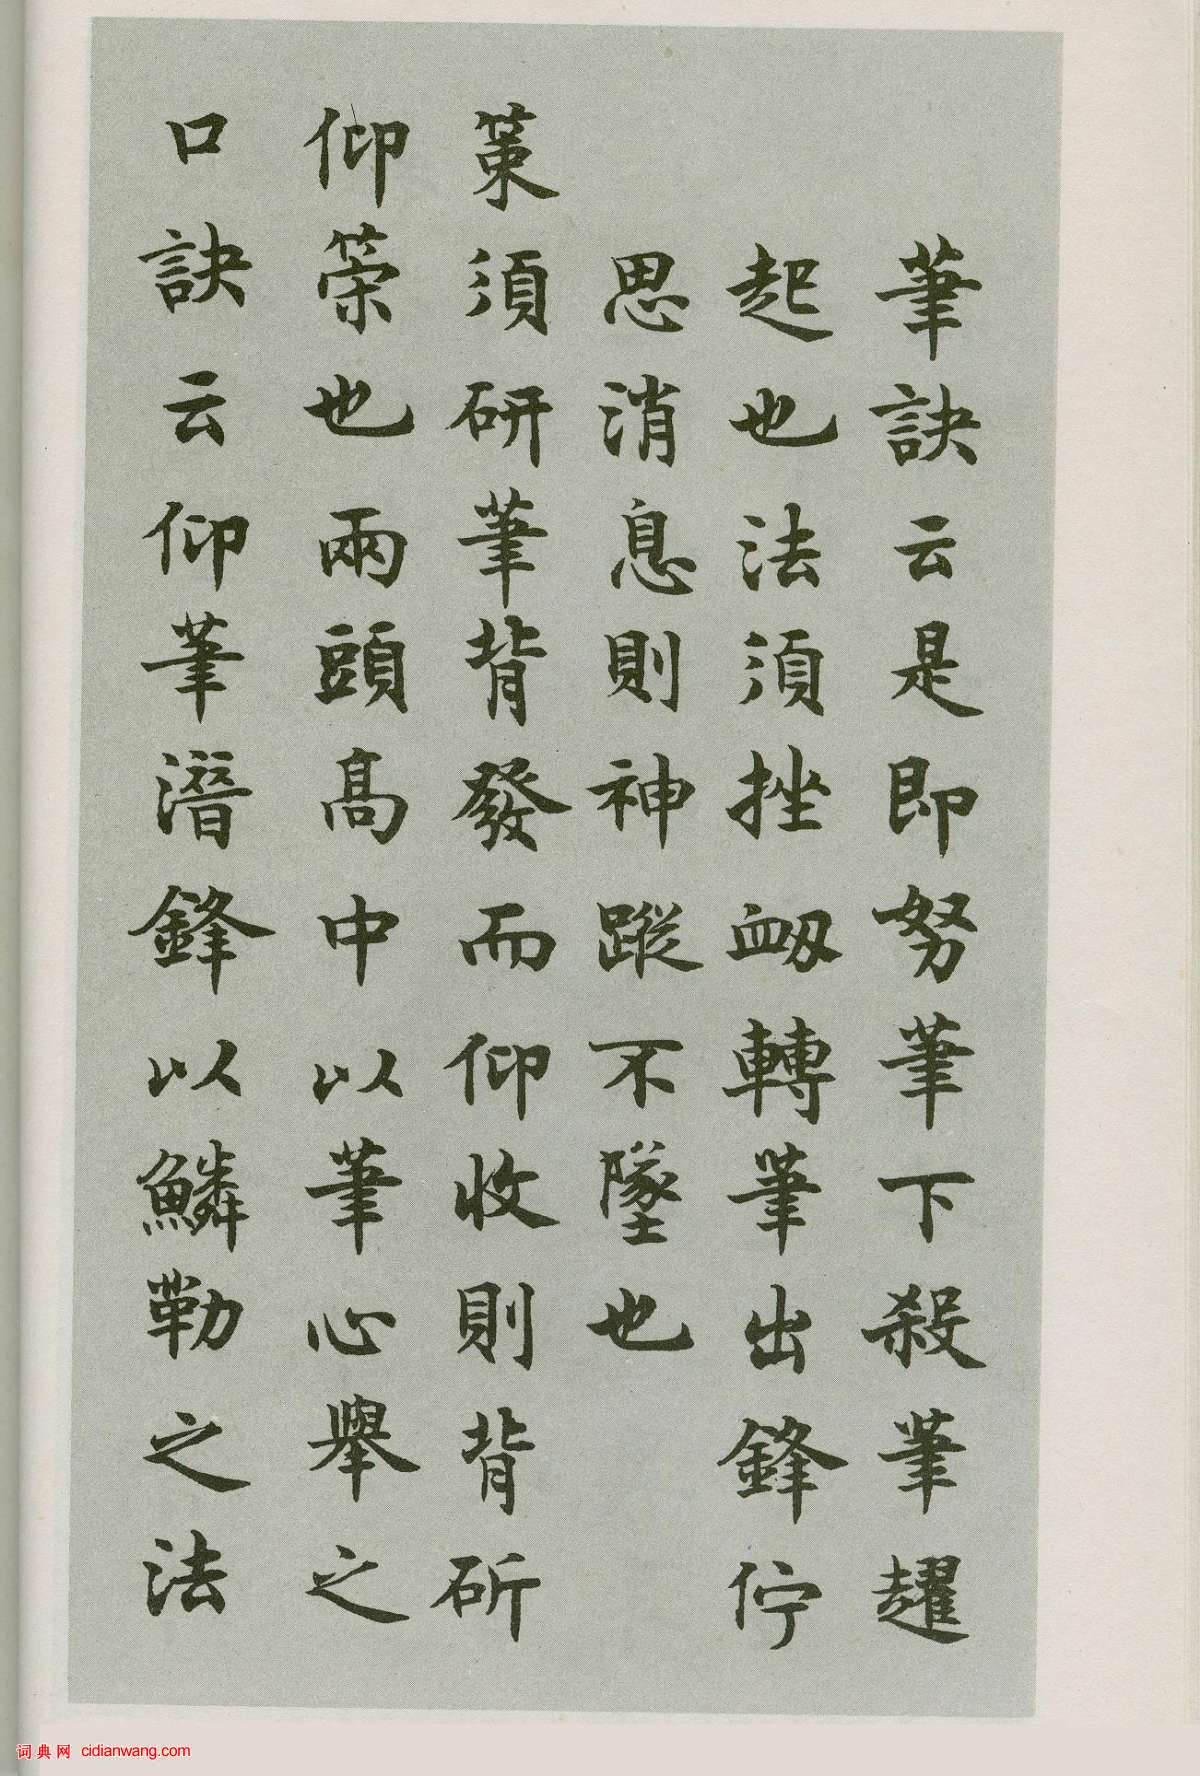 筆訣云是即努筆下殺筆趯
起也法須挫衂轉筆出鋒佇
思消息則神蹤不墜也
策須研筆背發而仰收則背斫
仰策也兩頭高中以筆心舉之
口訣云仰筆潛鋒以鱗勒之法
词典网 cidianwang.com